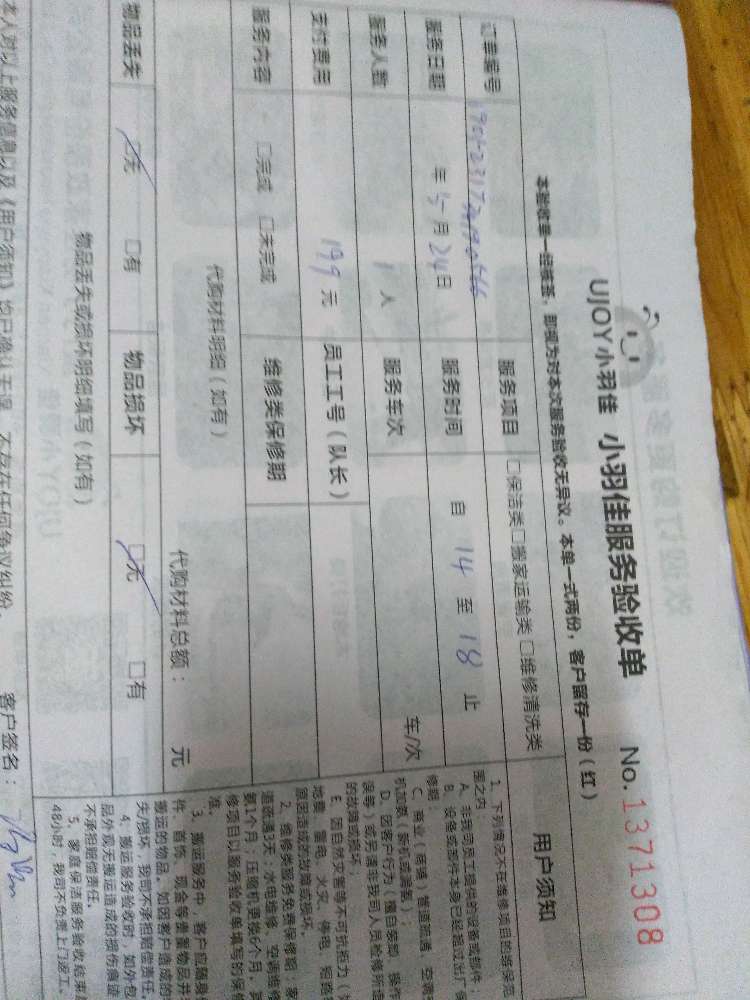 UJOY小羽佳 小羽佳服务验收单 No. 1371308
本验收单一经签签，即视为对本次服务验收无异议。本单一式两份，客户留存一份（红）
订单编号
服务项目 □保洁类□搬家运输类 □维修清洗类
服务日期 年 5 月 24 日 服务时间 自 14 至 18 止
服务人数 1 人 服务车次 车/次
支付费用 199 元 员工工号（队长）
服务内容 □完成 □未完成 维修类保修期
代购材料明细（如有） 代购材料总额： 元
物品丢失 □无 □有 物品损坏 □无 □有
物品丢失或损坏明细填写（如有）
本人对以上服务信息以及《用户须知》均已确认无误，不存在任何争议纠纷。 客户签名：
用户须知
1、下列情况不在维修项目的维保范
围之内：
A、非我司员工提供的设备或部件；
B、设备或部件本身已经超过出厂保
修期
C、商业（商铺）管道疏通、空调
D、因客户行为（擅自装卸、操作
误等）或另请非我司人员检修所造
的故障或损坏；
E、因自然灾害等不可抗拒力（
地震、雷电、火灾、停电、
等因造成的故障或损坏。
2、维修类服务免费保修期：家
道疏通5天；水电维修、空调维修
氨1个月；压缩机更换6个月，其
修项目以服务验收单填写的保修
准。
3、搬运服务中，客户应随身
件、首饰、现金等贵重物品并
搬运的物品。如因客户造成的
失/损坏，我司不承担赔偿责任。
4、搬运服务验收时，如外包
品外观无搬运造成的损伤痕迹
不承担赔偿责任。
5、家庭保洁服务验收结束
48小时，我司不负责上门返工。